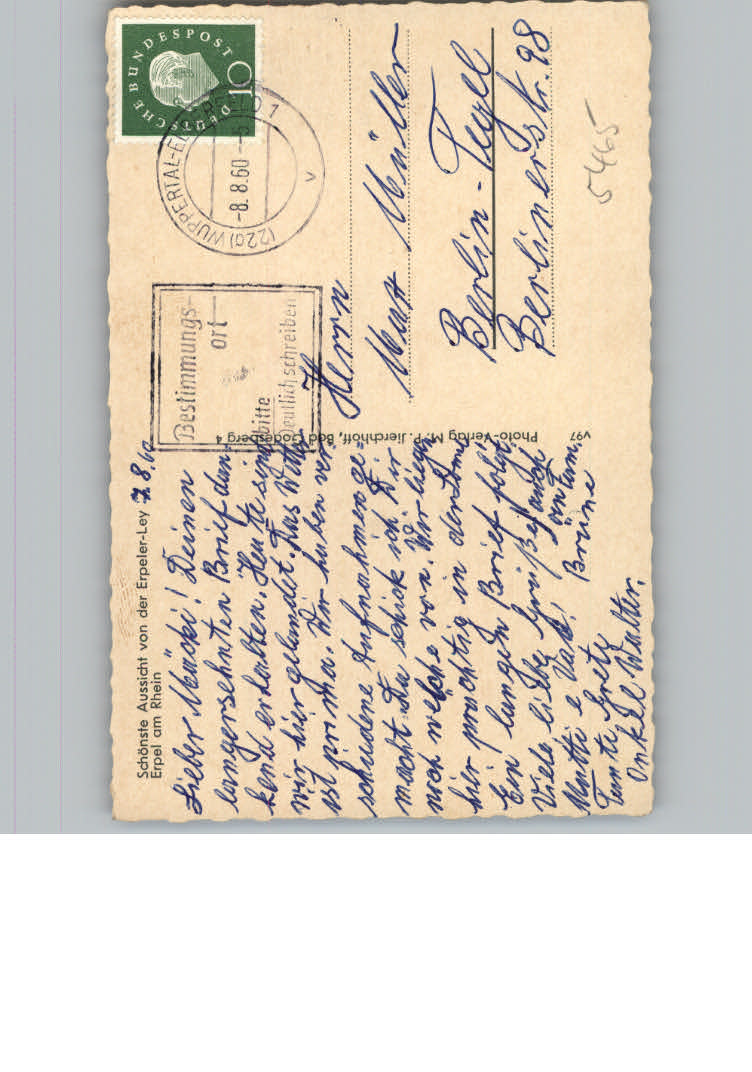 Schönste Aussicht von der Erpeler-Ley
Erpel am Rhein
7.8.60
Lieber Mäcki! Deinen
langersehnten Brief dan-
kend erhalten. Heute sind
wir hier gelandet. Das Wetter
ist prima. Wir haben ver-
schiedene Aufnahmen ge-
macht. Da schick ich Dir
noch welche von. Wir liegen
hier prächtig in der Sonne
Ein langer Brief folgt
Viele liebe Grüße auch
Mutti & Vati!
Tante Grete
Onkel Walter.
Brüne
V97 Photo-Verlag M. P. Jierchhoff, Bad Godesberg 4
DEUTSCHE BUNDESPOST
10
(22a) WUPPERTAL-ELBERFELD 1
-8.8.60-
v
Bestimmungs-
ort
bitte
Deutlich schreiben
Herrn
Müller
Berlin-Tegel
Berlinerstr. 98
5465